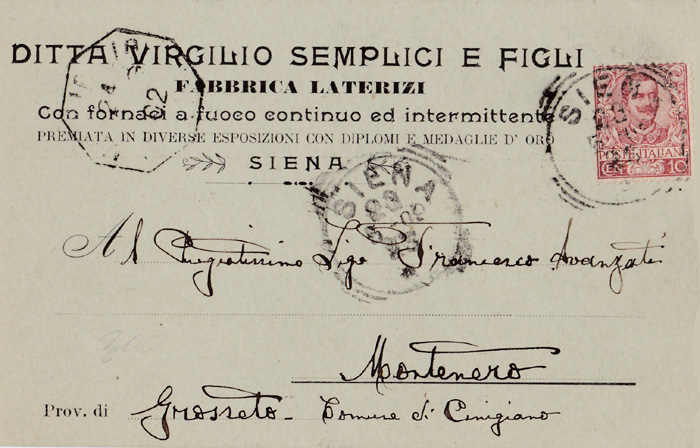 DITTA VIRGILIO SEMPLICI E FIGLI
FABBRICA LATERIZI
Con fornaci a fuoco continuo ed intermittente
PREMIATA IN DIVERSE ESPOSIZIONI CON DIPLOMI E MEDAGLIE D' ORO
SIENA
POSTE ITALIANE
CENT. 10
SIENA
Al Pregiatissimo Sigr Francesco Avanzati
Montenero
Prov. di Grosseto - Comune di Cinigiano